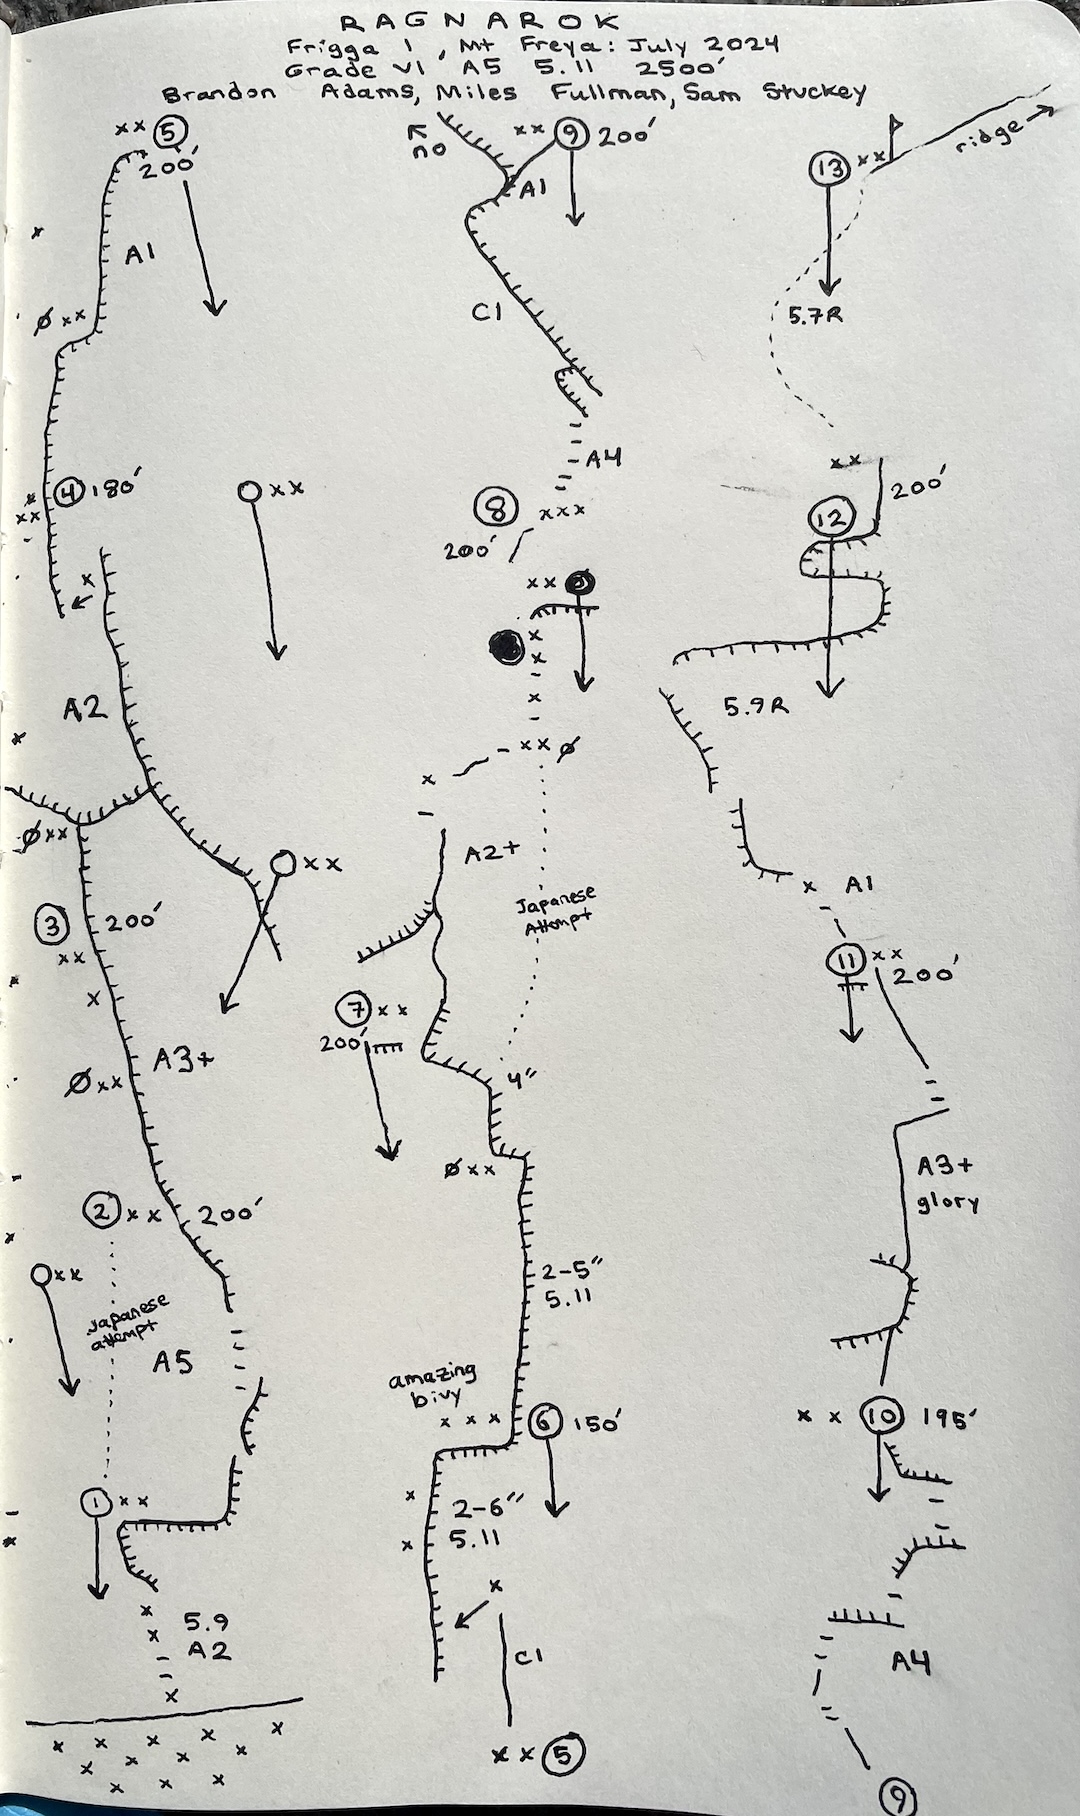 RAGNAROK
Frigga 1, Mt Freya: July 2024
Grade VI A5 5.11 2500'
Brandon Adams, Miles Fullman, Sam Stuckey
xx 5
200'
A1
Ø xx
4 180'
xx
x
xx
x
A2
Ø xx
xx
3 200'
xx
x
A3+
Ø xx
2 xx 200'
xx
Japanese
attempt
A5
1 xx
x
x
5.9
A2
x
x x x x x x x x x x x
no
xx 9 200'
A1
C1
A4
8 xxx
200'
xx
x
x
x
xx Ø
x
A2+
Japanese
Attempt
7 xx
200'
4"
Ø xx
2-5"
5.11
amazing
bivy
x x x 6 150'
x
2-6"
5.11
x
x
C1
xx 5
ridge
13 xx
5.7R
xx
200'
12
5.9R
x A1
11 xx
200'
A3+
glory
x x 10 195'
A4
9